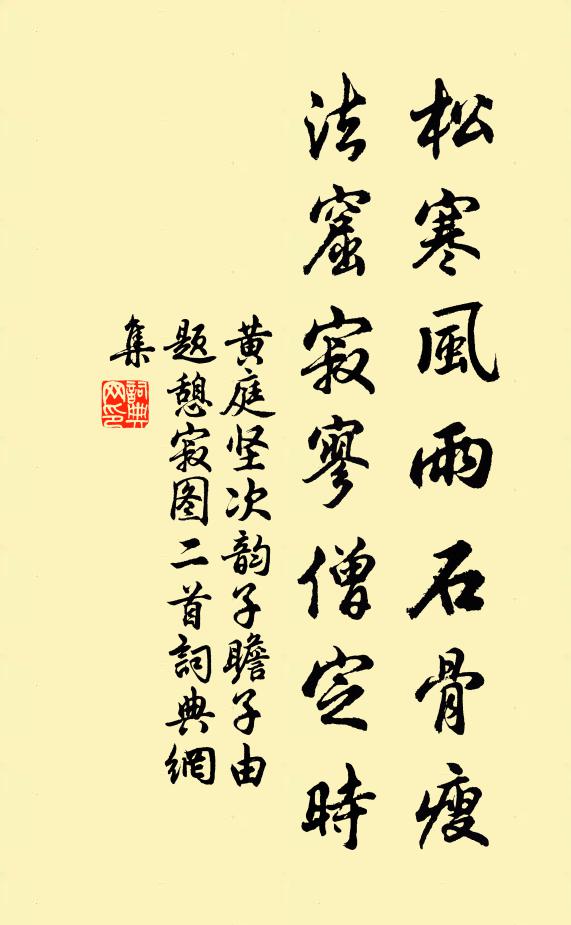 松寒風雨石骨瘦
法窟寂寥僧定時
黄庭坚次韵子瞻子由
题憩寂图二首詞典網
集
詞典网印